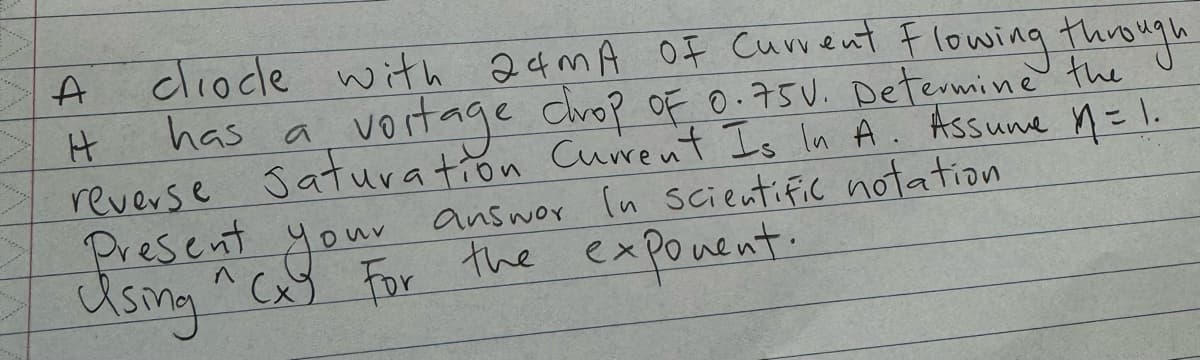 A diode with 24mA OF Current Flowing through
It has a vortage drop OF 0.75V. Determine the
reverse Saturation Current Is In A. Assume η=1.
Present your answor In Scientific notation
Using ^(x) For the exponent.